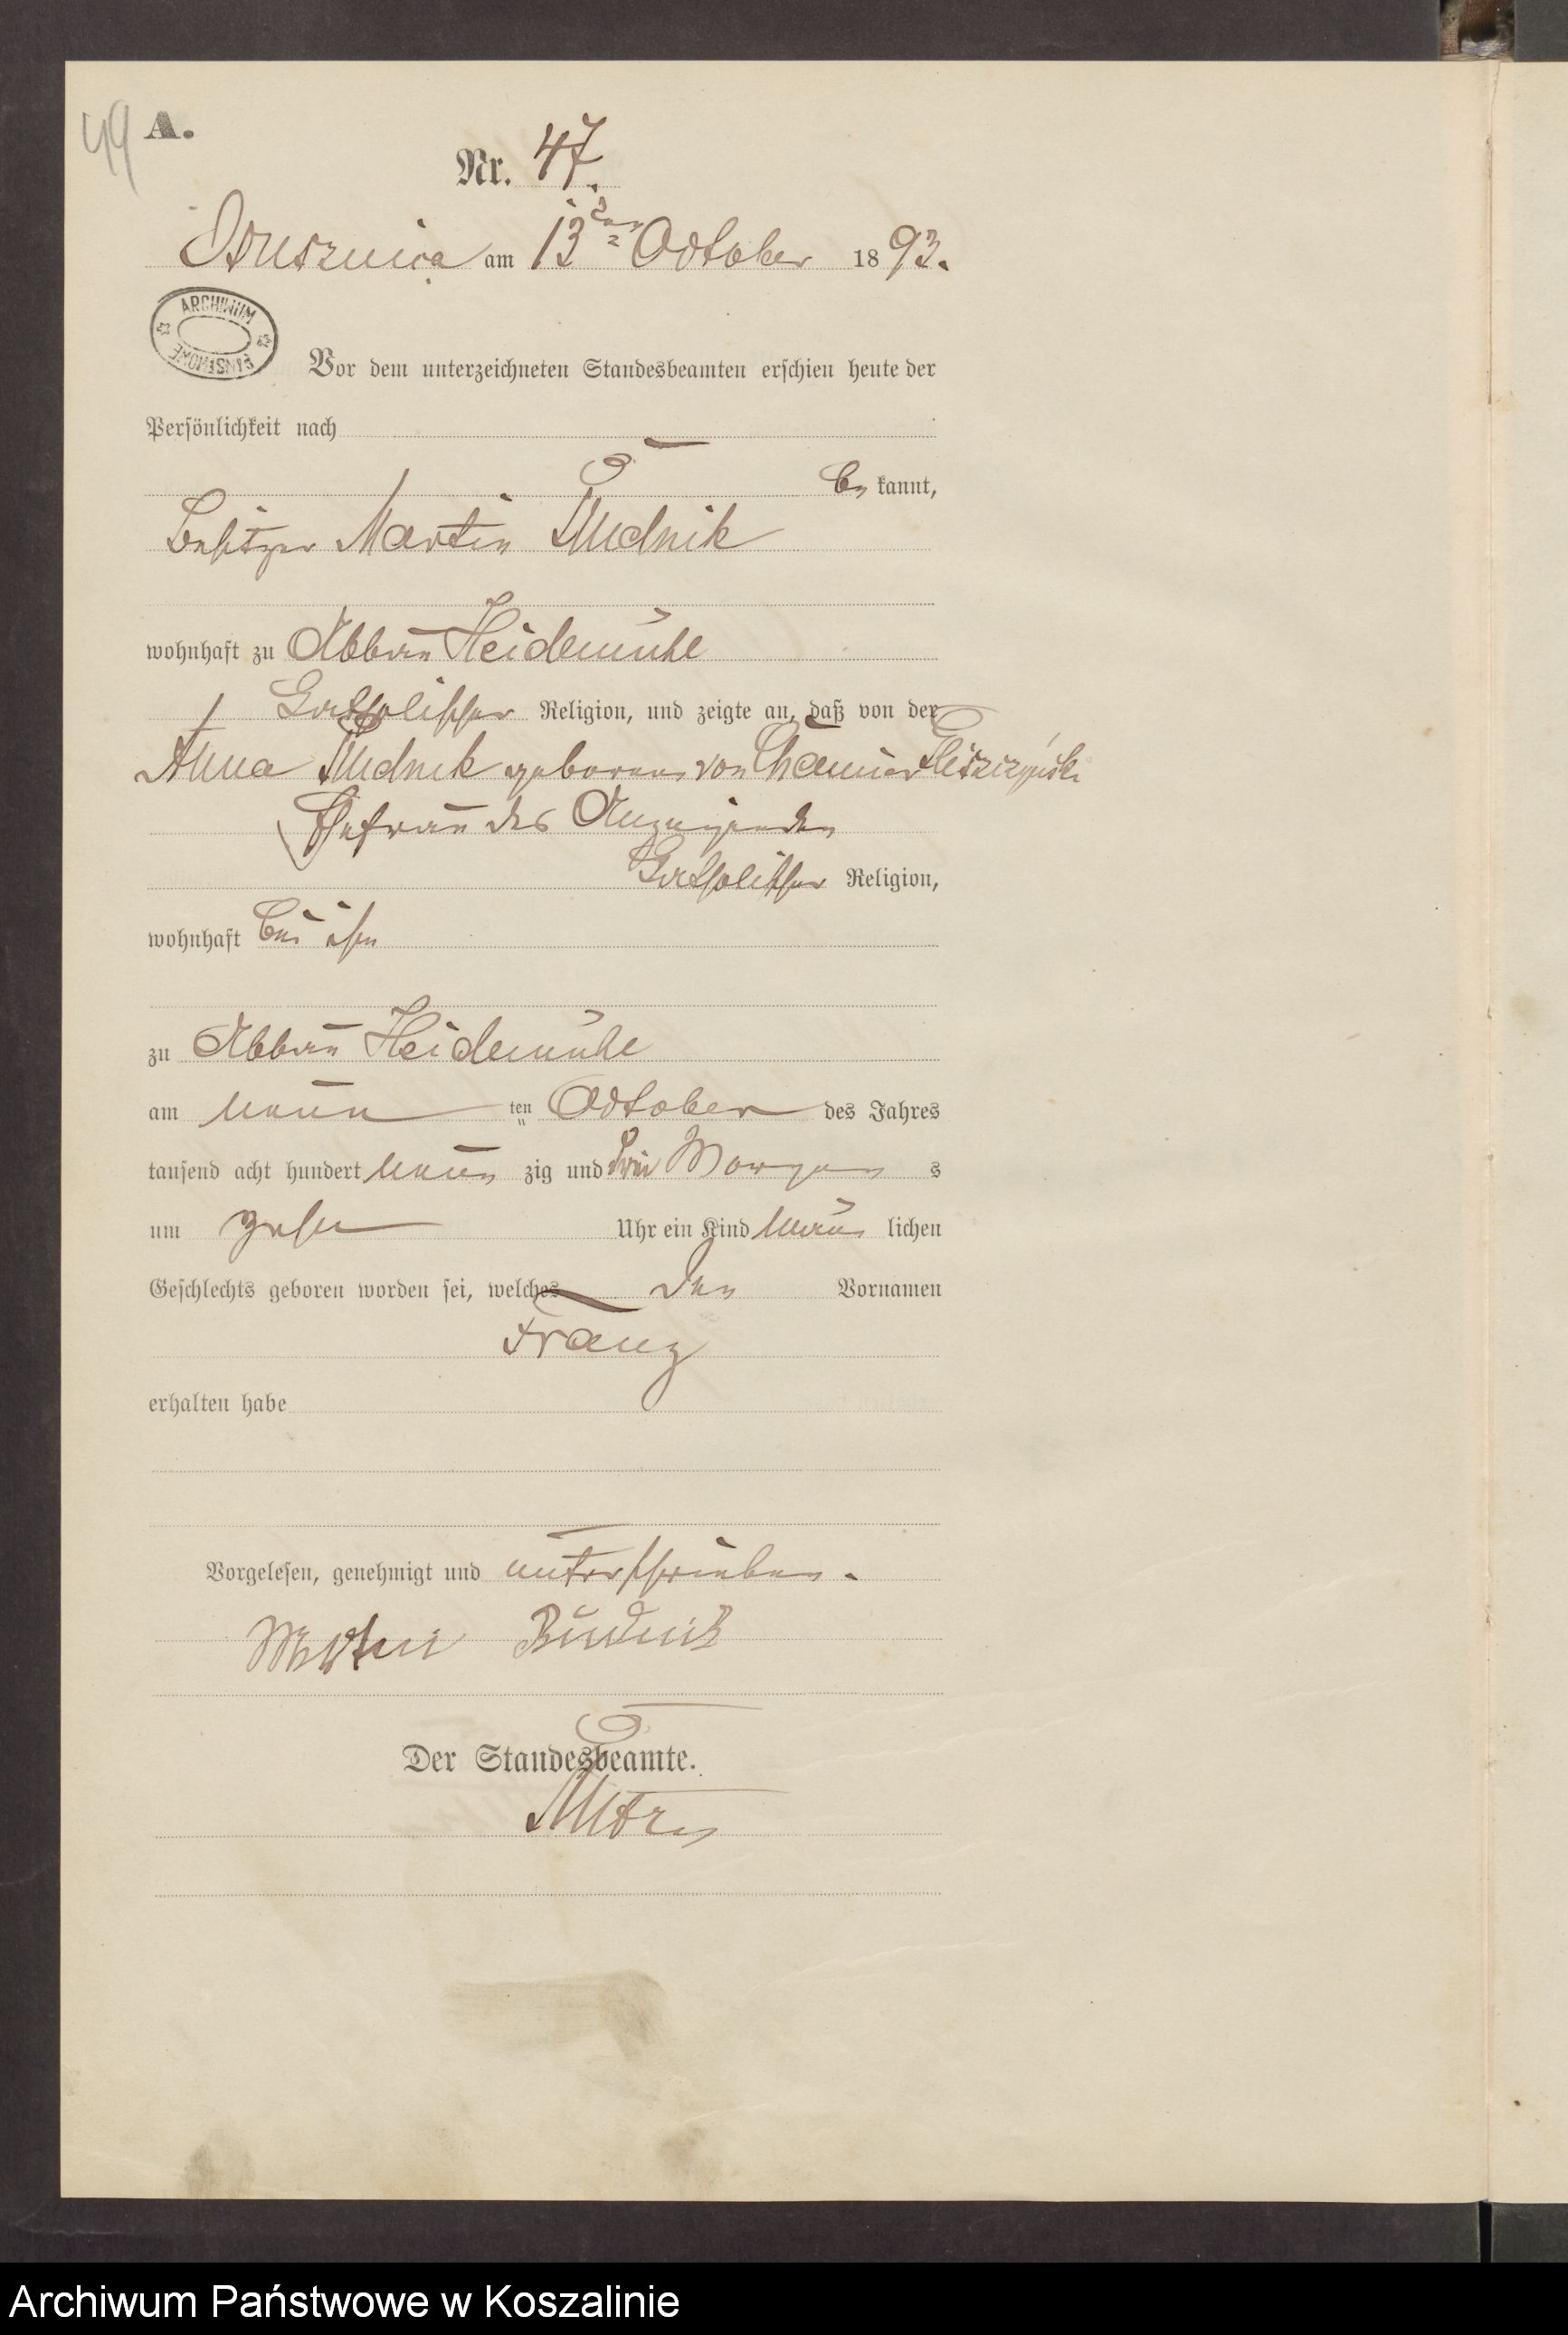 49
A.
Nr. 47.
am 13ten October 1893.
ARCHIWUM PAŃSTWOWE
Vor dem unterzeichneten Standesbeamten erschien heute der
Persönlichkeit nach
be kannt,
Besitzer Martin Rudnik
wohnhaft zu Abbau Heidemühle
katholischer Religion, und zeigte an, daß von der
Anna Rudnik geborene von
Ehefrau des Anzeigenden
katholischer Religion,
wohnhaft bei ihm
zu Abbau Heidemühle
am neun ten October des Jahres
tausend acht hundert neun zig und drei Morgen s
um zehn Uhr ein Kind männ lichen
Geschlechts geboren worden sei, welches den Vornamen
Franz
erhalten habe
Vorgelesen, genehmigt und unterschrieben.
Der Standesbeamte.
Archiwum Państwowe w Koszalinie